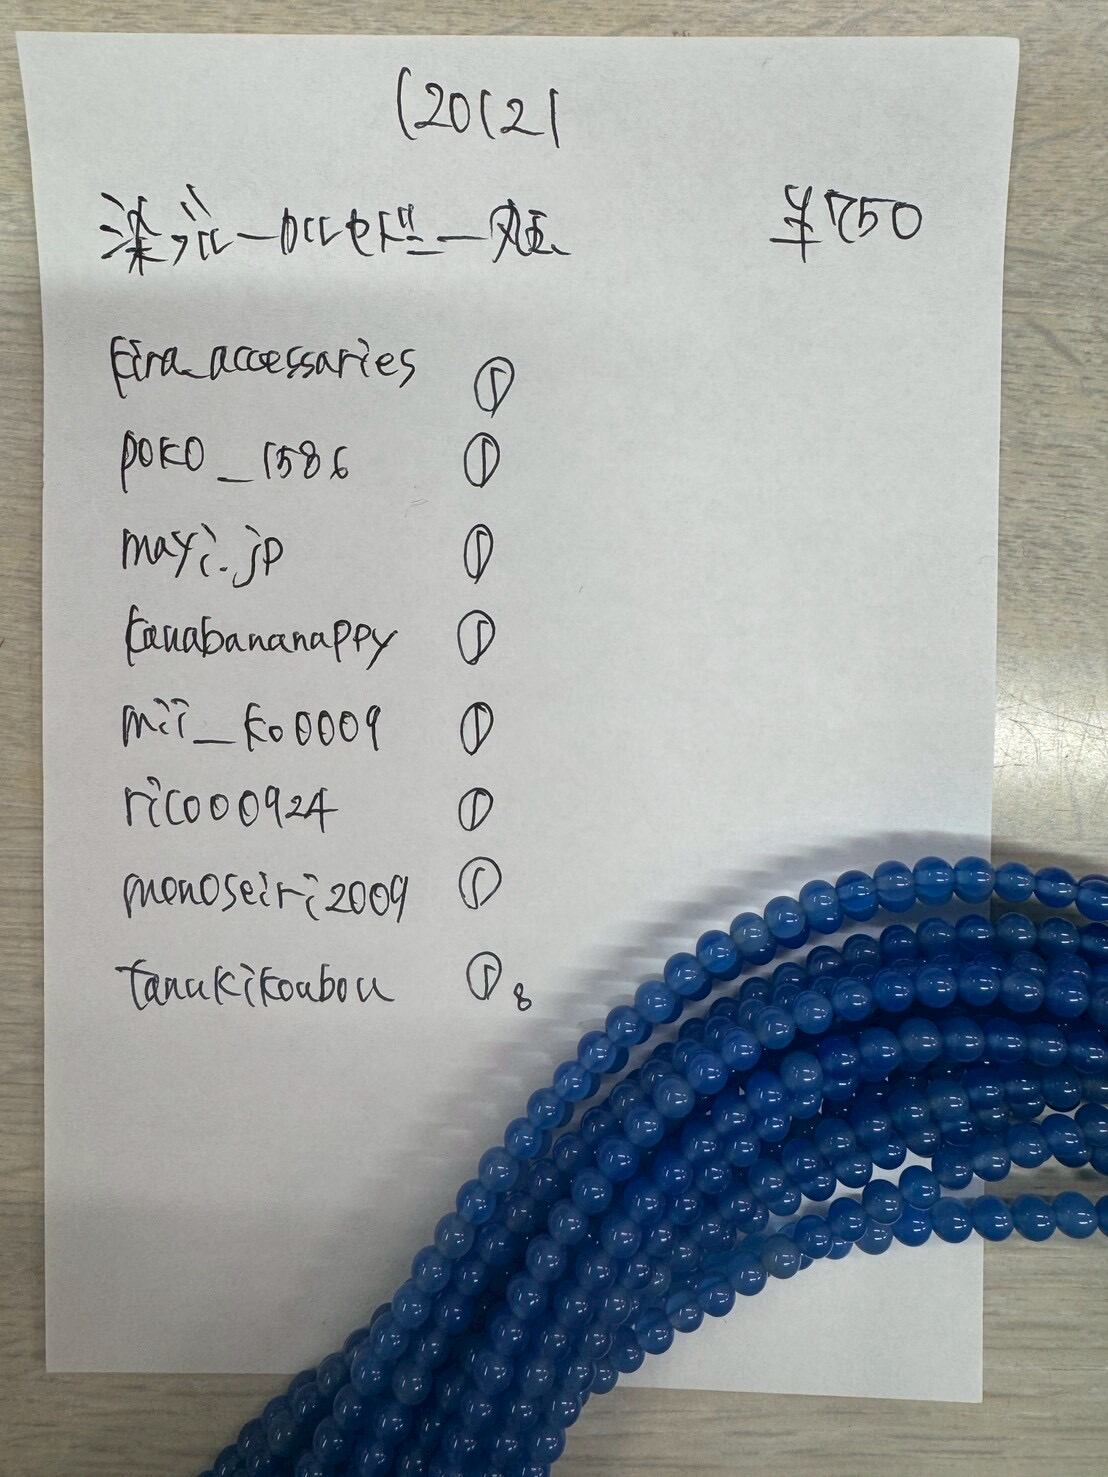 120121
¥750
kira_accessaries ①
poko_1586 ①
mayi.jp ①
kanabananappy ①
mii_ko0009 ①
rico000924 ①
monoseiri2009 ①
tanukikoubou ① 8